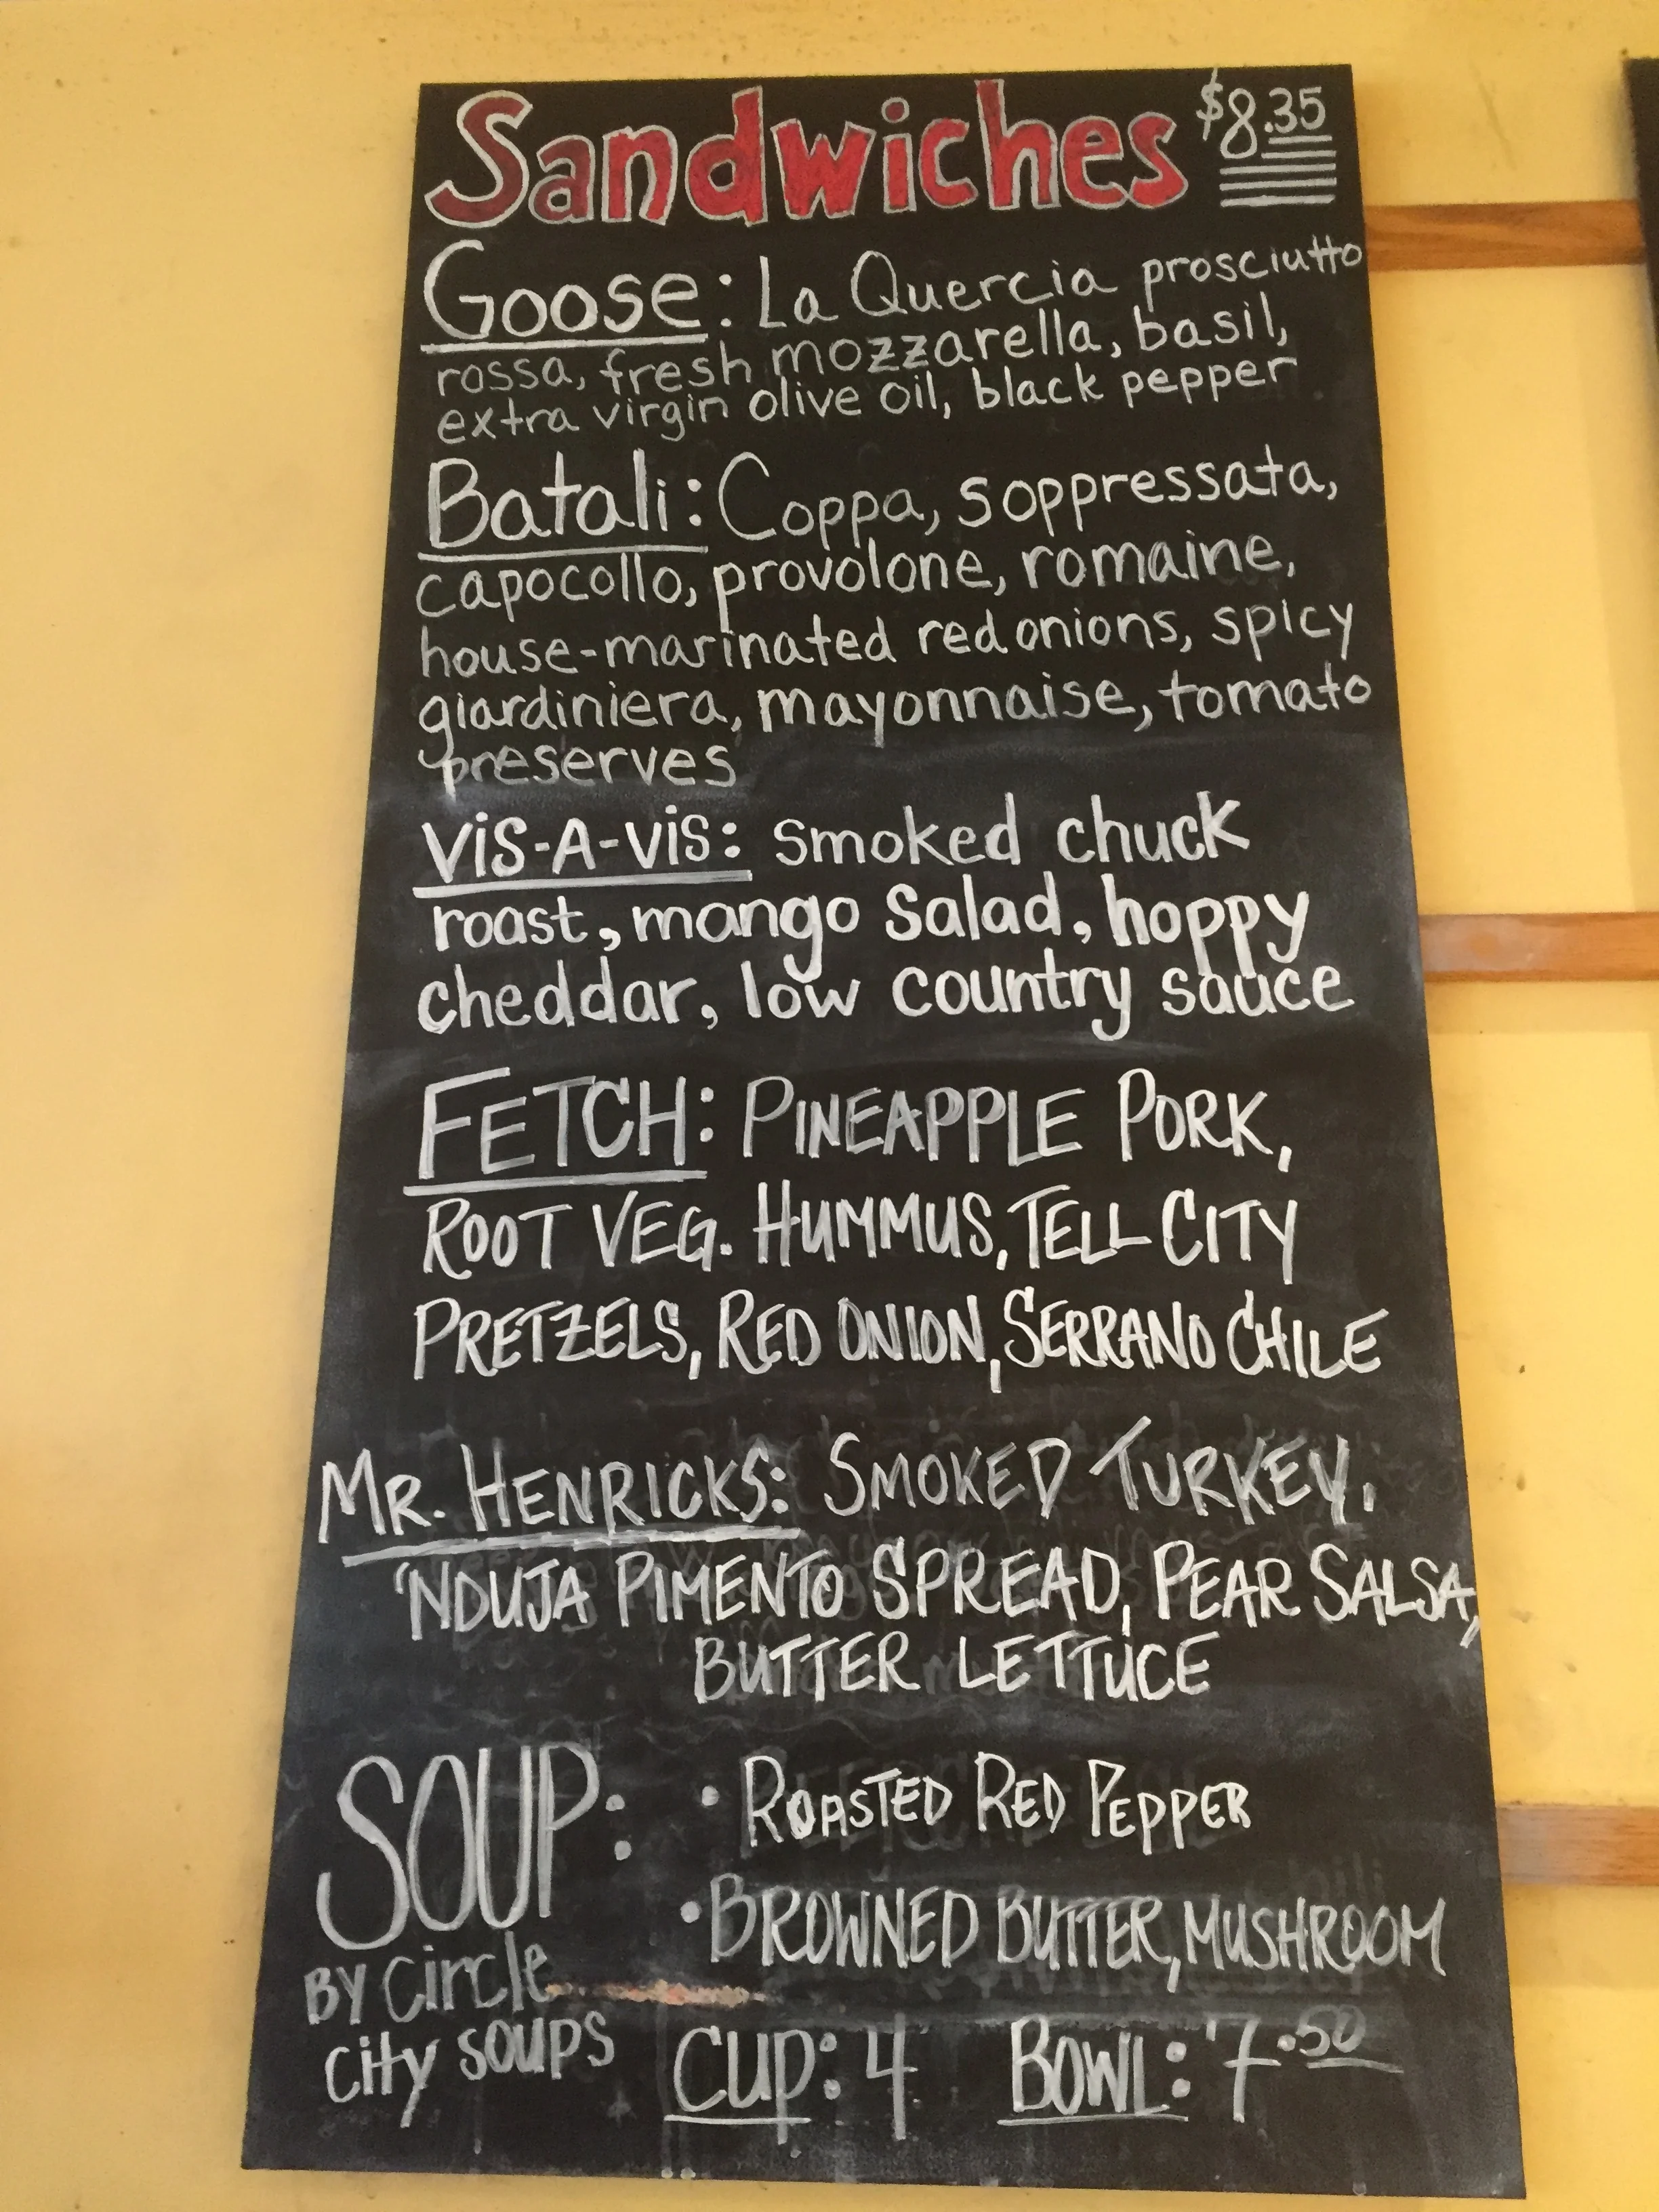 Sandwiches $8.35
Goose: La Quercia prosciutto
rossa, fresh mozzarella, basil,
extra virgin olive oil, black pepper
Batali: Coppa, soppressata,
capocollo, provolone, romaine,
house-marinated red onions, spicy
giardiniera, mayonnaise, tomato
preserves
Vis-A-Vis: smoked chuck
roast, mango salad, hoppy
cheddar, low country sauce
FETCH: PINEAPPLE PORK,
ROOT VEG. HUMMUS, TELL CITY
PRETZELS, RED ONION, SERRANO CHILE
MR. HENRICKS: SMOKED TURKEY,
'NDUJA PIMENTO SPREAD, PEAR SALSA,
BUTTER LETTUCE
SOUP: • ROASTED RED PEPPER
• BROWNED BUTTER, MUSHROOM
BY Circle
City SOUPS
CUP: 4 BOWL: 7.50